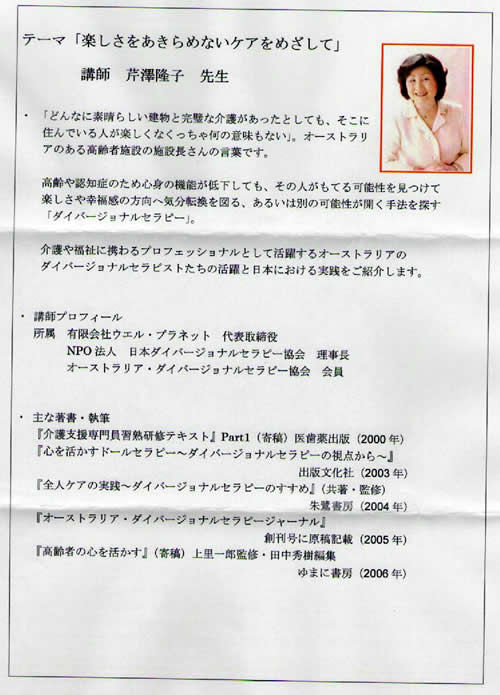 テーマ「楽しさをあきらめないケアをめざして」
講師　芹澤隆子　先生
・「どんなに素晴らしい建物と完璧な介護があったとしても、そこに
住んでいる人が楽しくなくっちゃ何の意味もない」。オーストラリ
アのある高齢者施設の施設長さんの言葉です。
高齢や認知症のため心身の機能が低下しても、その人がもてる可能性を見つけて
楽しさや幸福感の方向へ気分転換を図る、あるいは別の可能性が開く手法を探す
「ダイバージョナルセラピー」。
介護や福祉に携わるプロフェッショナルとして活躍するオーストラリアの
ダイバージョナルセラピストたちの活躍と日本における実践をご紹介します。
・講師プロフィール
所属　有限会社ウエル・プラネット　代表取締役
NPO法人　日本ダイバージョナルセラピー協会　理事長
オーストラリア・ダイバージョナルセラピー協会　会員
・主な著書・執筆
『介護支援専門員習熟研修テキスト』Part1（寄稿）医歯薬出版（2000年）
『心を活かすドールセラピー～ダイバージョナルセラピーの視点から～』
出版文化社（2003年）
『全人ケアの実践～ダイバージョナルセラピーのすすめ』（共著・監修）
朱鷺書房（2004年）
『オーストラリア・ダイバージョナルセラピージャーナル』
創刊号に原稿記載（2005年）
『高齢者の心を活かす』（寄稿）上里一郎監修・田中秀樹編集
ゆまに書房（2006年）